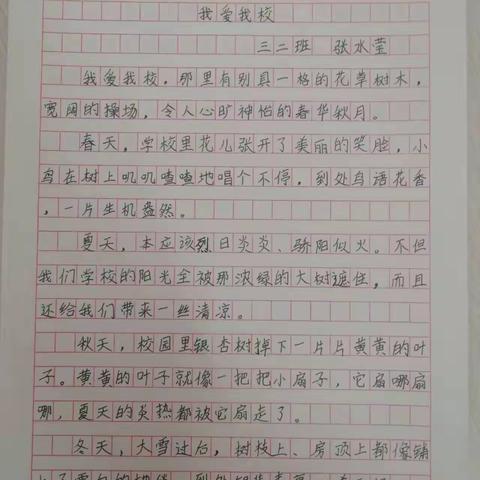 我爱我校
三二班 张水莹
我爱我校，那里有别具一格的花草树木，
宽阔的操场，令人心旷神怡的春华秋月。
春天，学校里花儿张开了美丽的笑脸，小
鸟在树上叽叽喳喳地唱个不停，到处鸟语花香
，一片生机盎然。
夏天，本应该烈日炎炎、骄阳似火。不但
我们学校的阳光全被那浓绿的大树遮住，而且
还给我们带来一丝清凉。
秋天，校园里银杏树掉下一片片黄黄的叶
子。黄黄的叶子就像一把把小扇子，它扇哪扇
哪，夏天的炎热都被它扇走了。
冬天，大雪过后，树枝上、房顶上都像铺